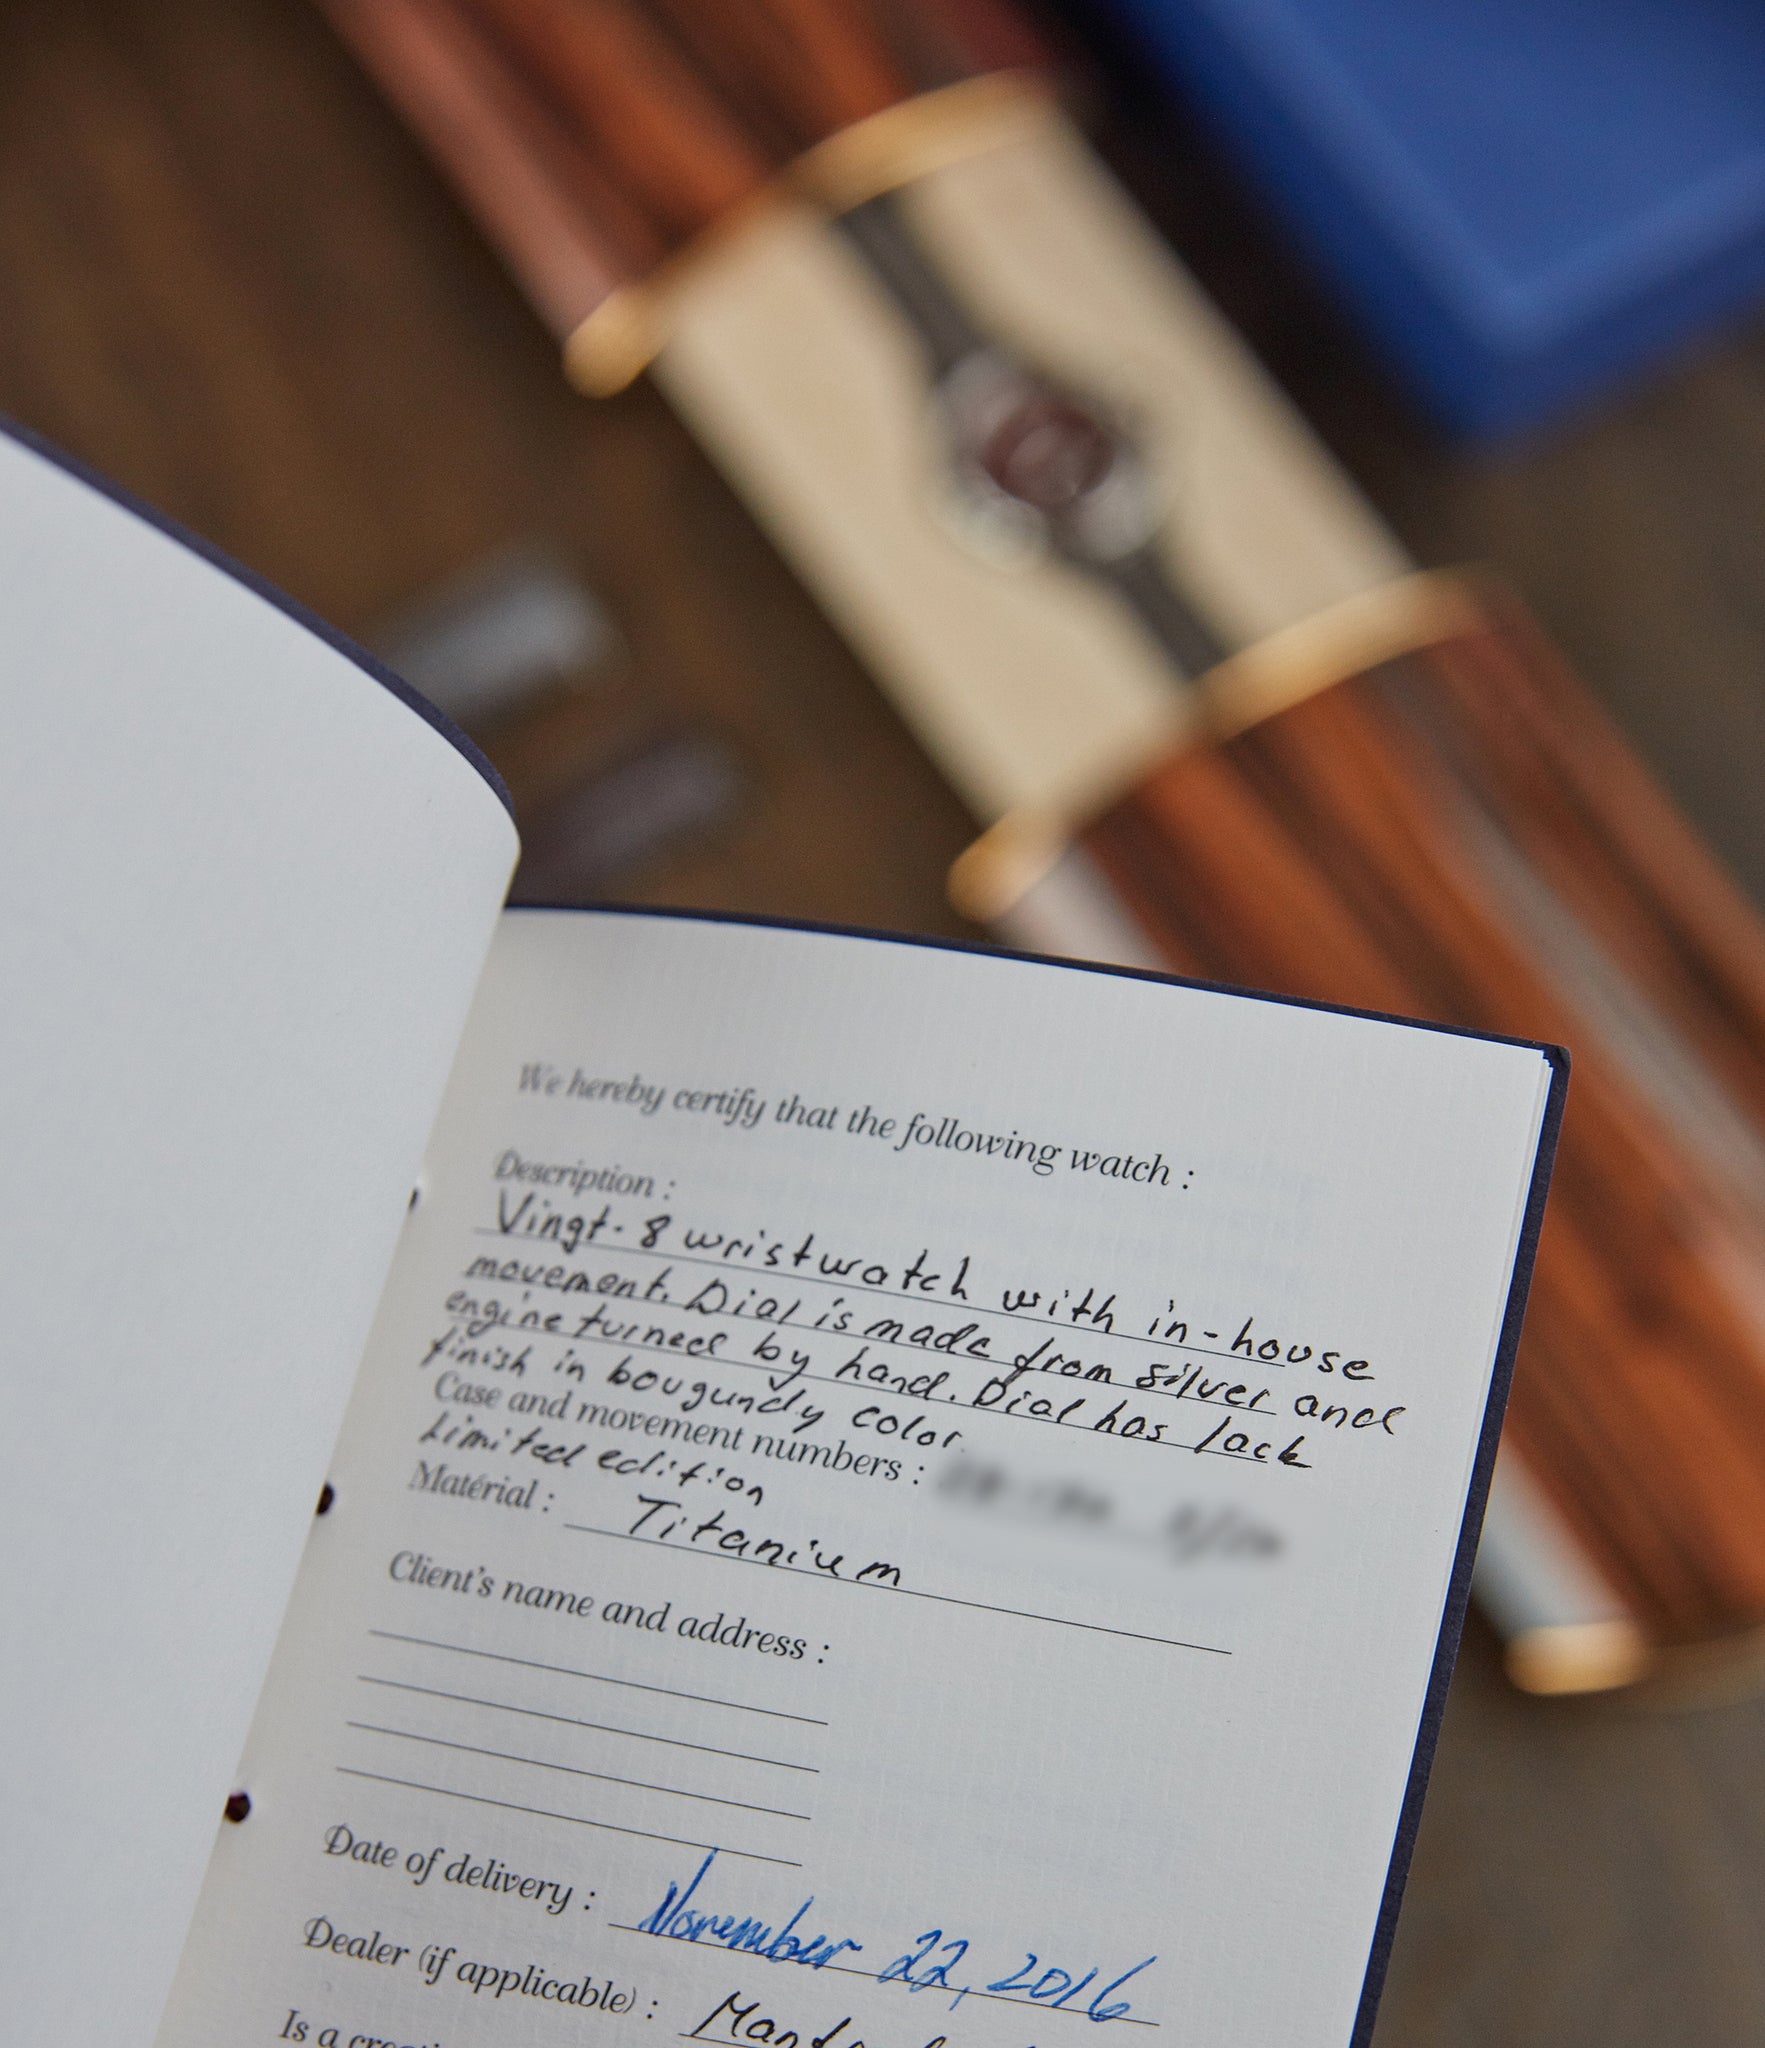 We hereby certify that the following watch :
Description :
Vingt-8 wristwatch with in-house
movement. Dial is made from silver and
engine turned by hand. Dial has lack
finish in bougundy color.
Case and movement numbers :
Limited edition
Matérial : Titanium
Client's name and address :
Date of delivery : November 22, 2016
Dealer (if applicable) :
Is a